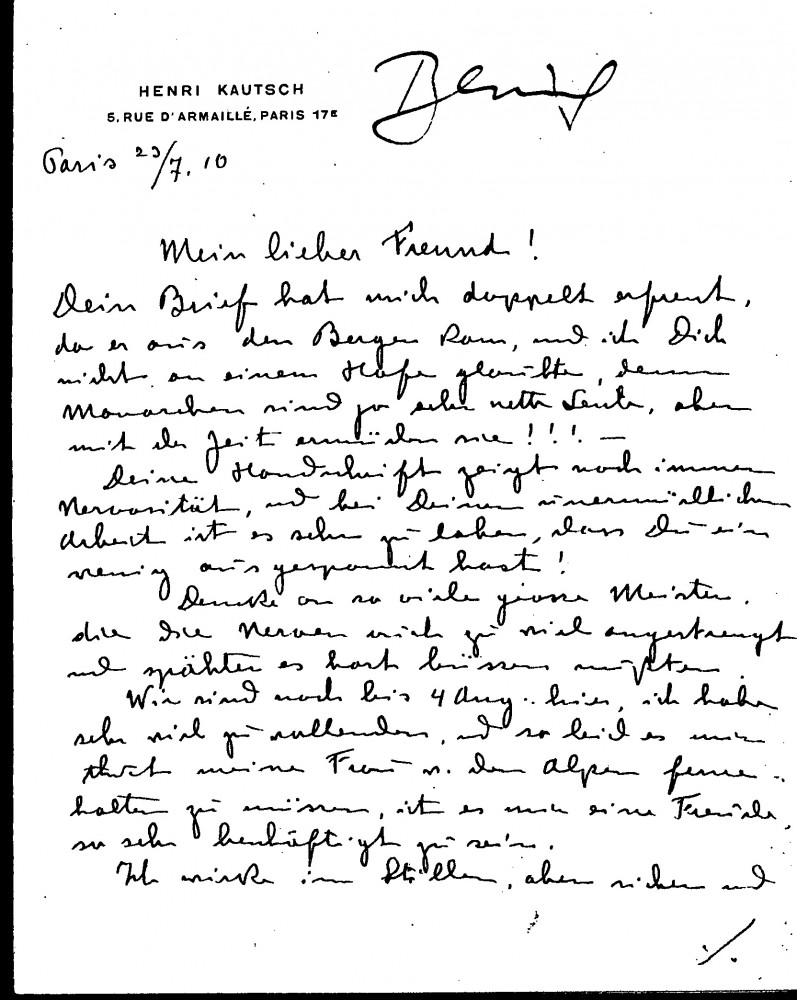 HENRI KAUTSCH
5, RUE D'ARMAILLÉ, PARIS 17E
Paris 23/7. 10
Mein lieber Freund!
Dein Brief hat mich doppelt erfreut,
da er aus den Bergen kam, und ich Dich
nicht an einem Hofe glaubte, denn
Monarchen sind ja sehr nette Leute, aber
mit der Zeit ermüden sie!!! —
Deine Handschrift zeigt noch immer
Nervosität, und bei Deiner unermüdlichen
Arbeit ist es sehr zu loben, dass Du ein
wenig ausgespannt hast!
Denke an so viele grosse Meister,
die die Nerven zu viel angestrengt
und spähter es hart büssen mußten.
Wir sind noch bis 4 Aug. hier, ich habe
sehr viel zu vollenden, und so leid es mir
thut meine Frau v. den Alpen ferne
halten zu müssen, ist es mir eine Freude,
so sehr beschäftigt zu sein.
Ich wirke im Stillen, aber sicher und
./.